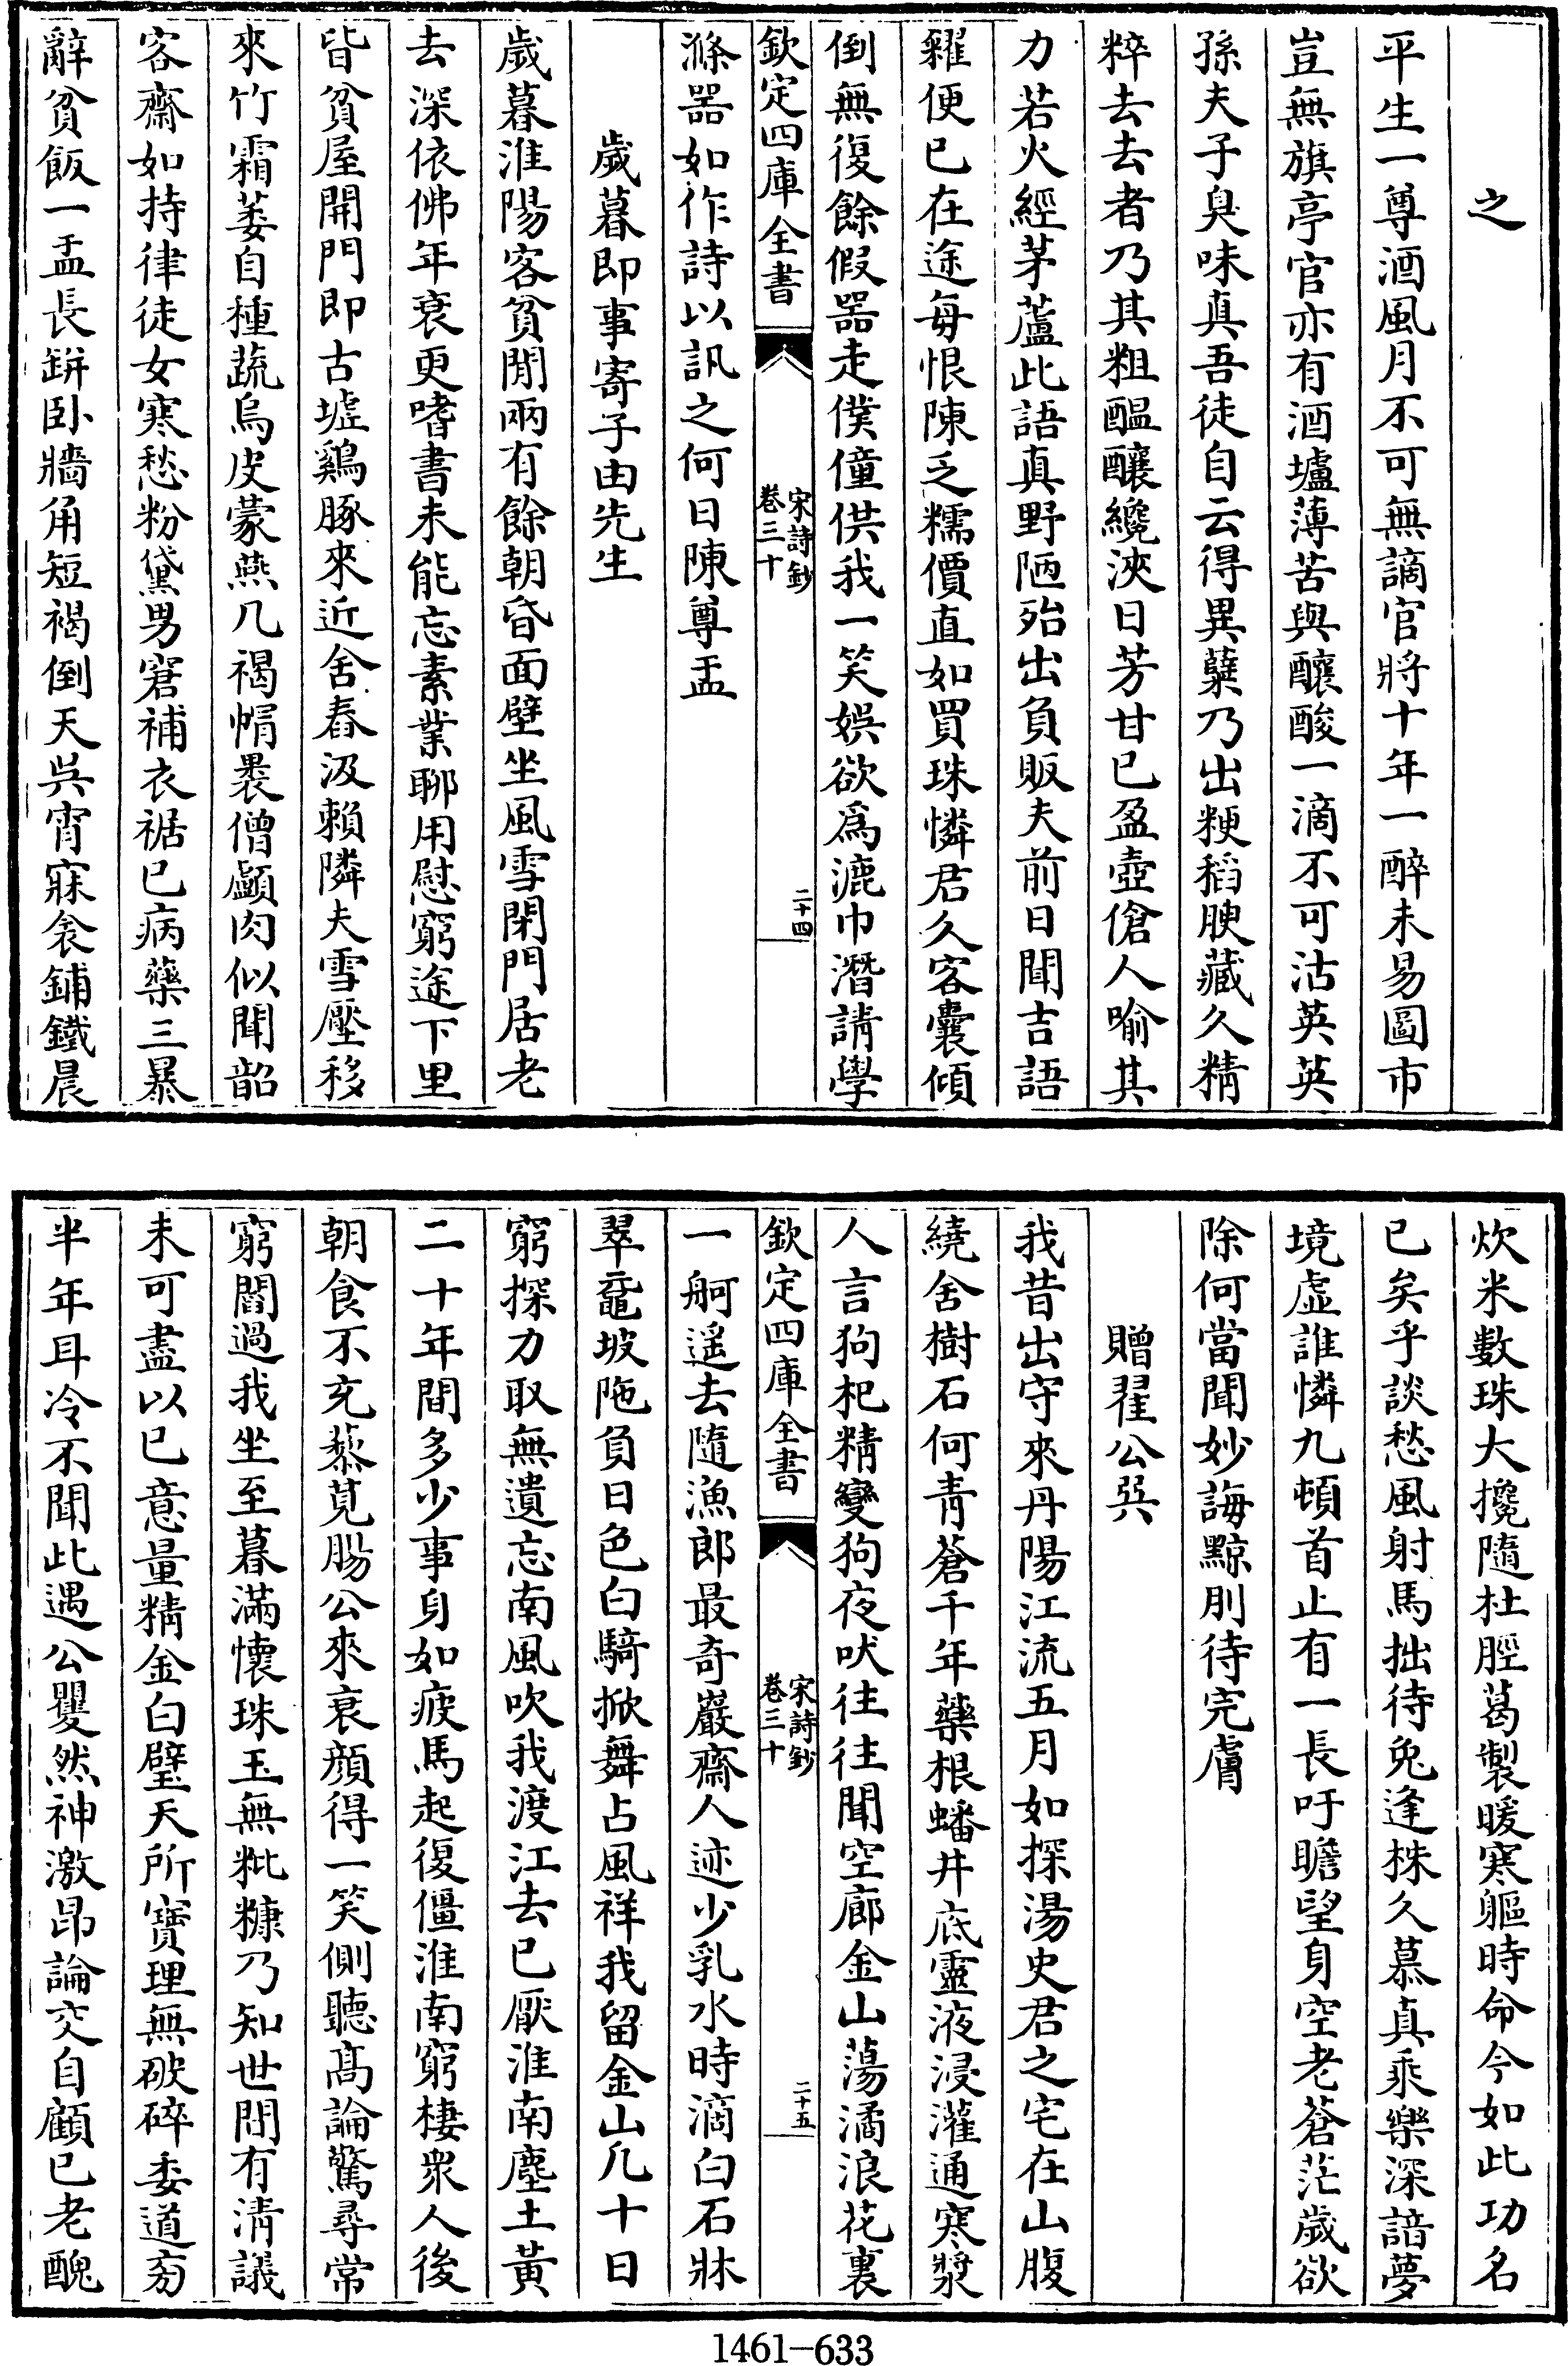 之
平生一尊酒風月不可無謫官將十年一醉未易圖市
豈無旗亭官亦有酒壚薄苦與釀酸一滴不可沽英英
孫夫子臭味真吾徒自云得異蘖乃出粳稻腴藏久精
粹去去者乃其粗醖釀纔浹日芳甘已盈壺傖人喻其
力若火經茅蘆此語真野陋殆出負販夫前日聞吉語
糴便已在途毎恨陳乏糯價直如買珠憐君久客囊傾
倒無復餘假器走僕僮供我一笑娯欲爲漉巾潛請學
欽定四庫全書
宋詩鈔
卷三十
二十四
滌器如作詩以訊之何日陳尊盂
歲暮即事寄子由先生
歲暮淮陽客貧閒兩有餘朝昏面壁坐風雪閉門居老
去深依佛年衰更嗜書未能忘素業聊用慰窮途下里
皆貧屋開門即古墟鷄豚來近舍舂汲賴隣夫雪壓移
來竹霜萎自種蔬烏皮蒙燕几褐帽裹僧顱肉似聞韶
客齋如持律徒女寒愁粉黛男窘補衣裾已病藥三暴
辭貧飯一盂長缾卧牆角短褐倒天吳宵寐衾鋪鐵晨
炊米數珠大攙隨杜脛葛製暖寒軀時命今如此功名
已矣乎談愁風射馬拙待兔逢株久慕真乘樂深諳夢
境虚誰憐九頓首止有一長吁瞻望身空老蒼茫歲欲
除何當聞妙誨黥刖待完膚
贈翟公㢲
我昔出守來丹陽江流五月如探湯史君之宅在山腹
繞舍樹石何青蒼千年藥根蟠井底靈液浸灌通寒漿
人言狗杞精變狗夜吠往往聞空廊金山蕩潏浪花裏
欽定四庫全書
宋詩鈔
卷三十
二十五
一舸遥去隨漁郎最奇巖齋人迹少乳水時滴白石牀
翠黿坡陁負日色白騎掀舞占風祥我留金山凡十日
窮探力取無遺忘南風吹我渡江去已厭淮南塵土黃
二十年間多少事身如疲馬起復僵淮南窮棲衆人後
朝食不充藜莧腸公來衰顔得一笑側聽髙論驚尋常
窮閻過我坐至暮滿懷珠玉無粃糠乃知世間有清議
未可盡以已意量精金白璧天所寶理無破碎委道旁
半年耳冷不聞此遇公矍然神激昂論交自顧已老醜
1461-633